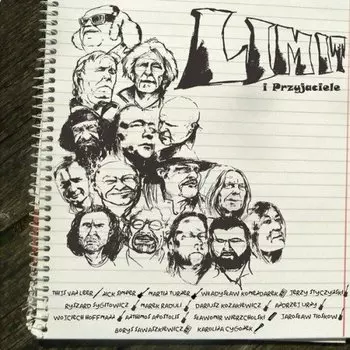 LIMIT
i Przyjaciele
THIJS VAN LEER / NICK SIMPER MARTIN TURNER WŁADYSŁAW KOMENDAREK JERZY STYCZYŃSKI
RYSZARD SYGITOWICZ MAREK RADULI DARIUSZ KOZAKIEWICZ ANDRZEJ URNY
WOJCIECH HOFFMANN ANTHIMOS APOSTOLIS SŁAWOMIR WIERZCHOLSKI JAROSŁAW TIOSKOW
BORYS SAWASZKIEWICZ KAROLINA CYGONEK